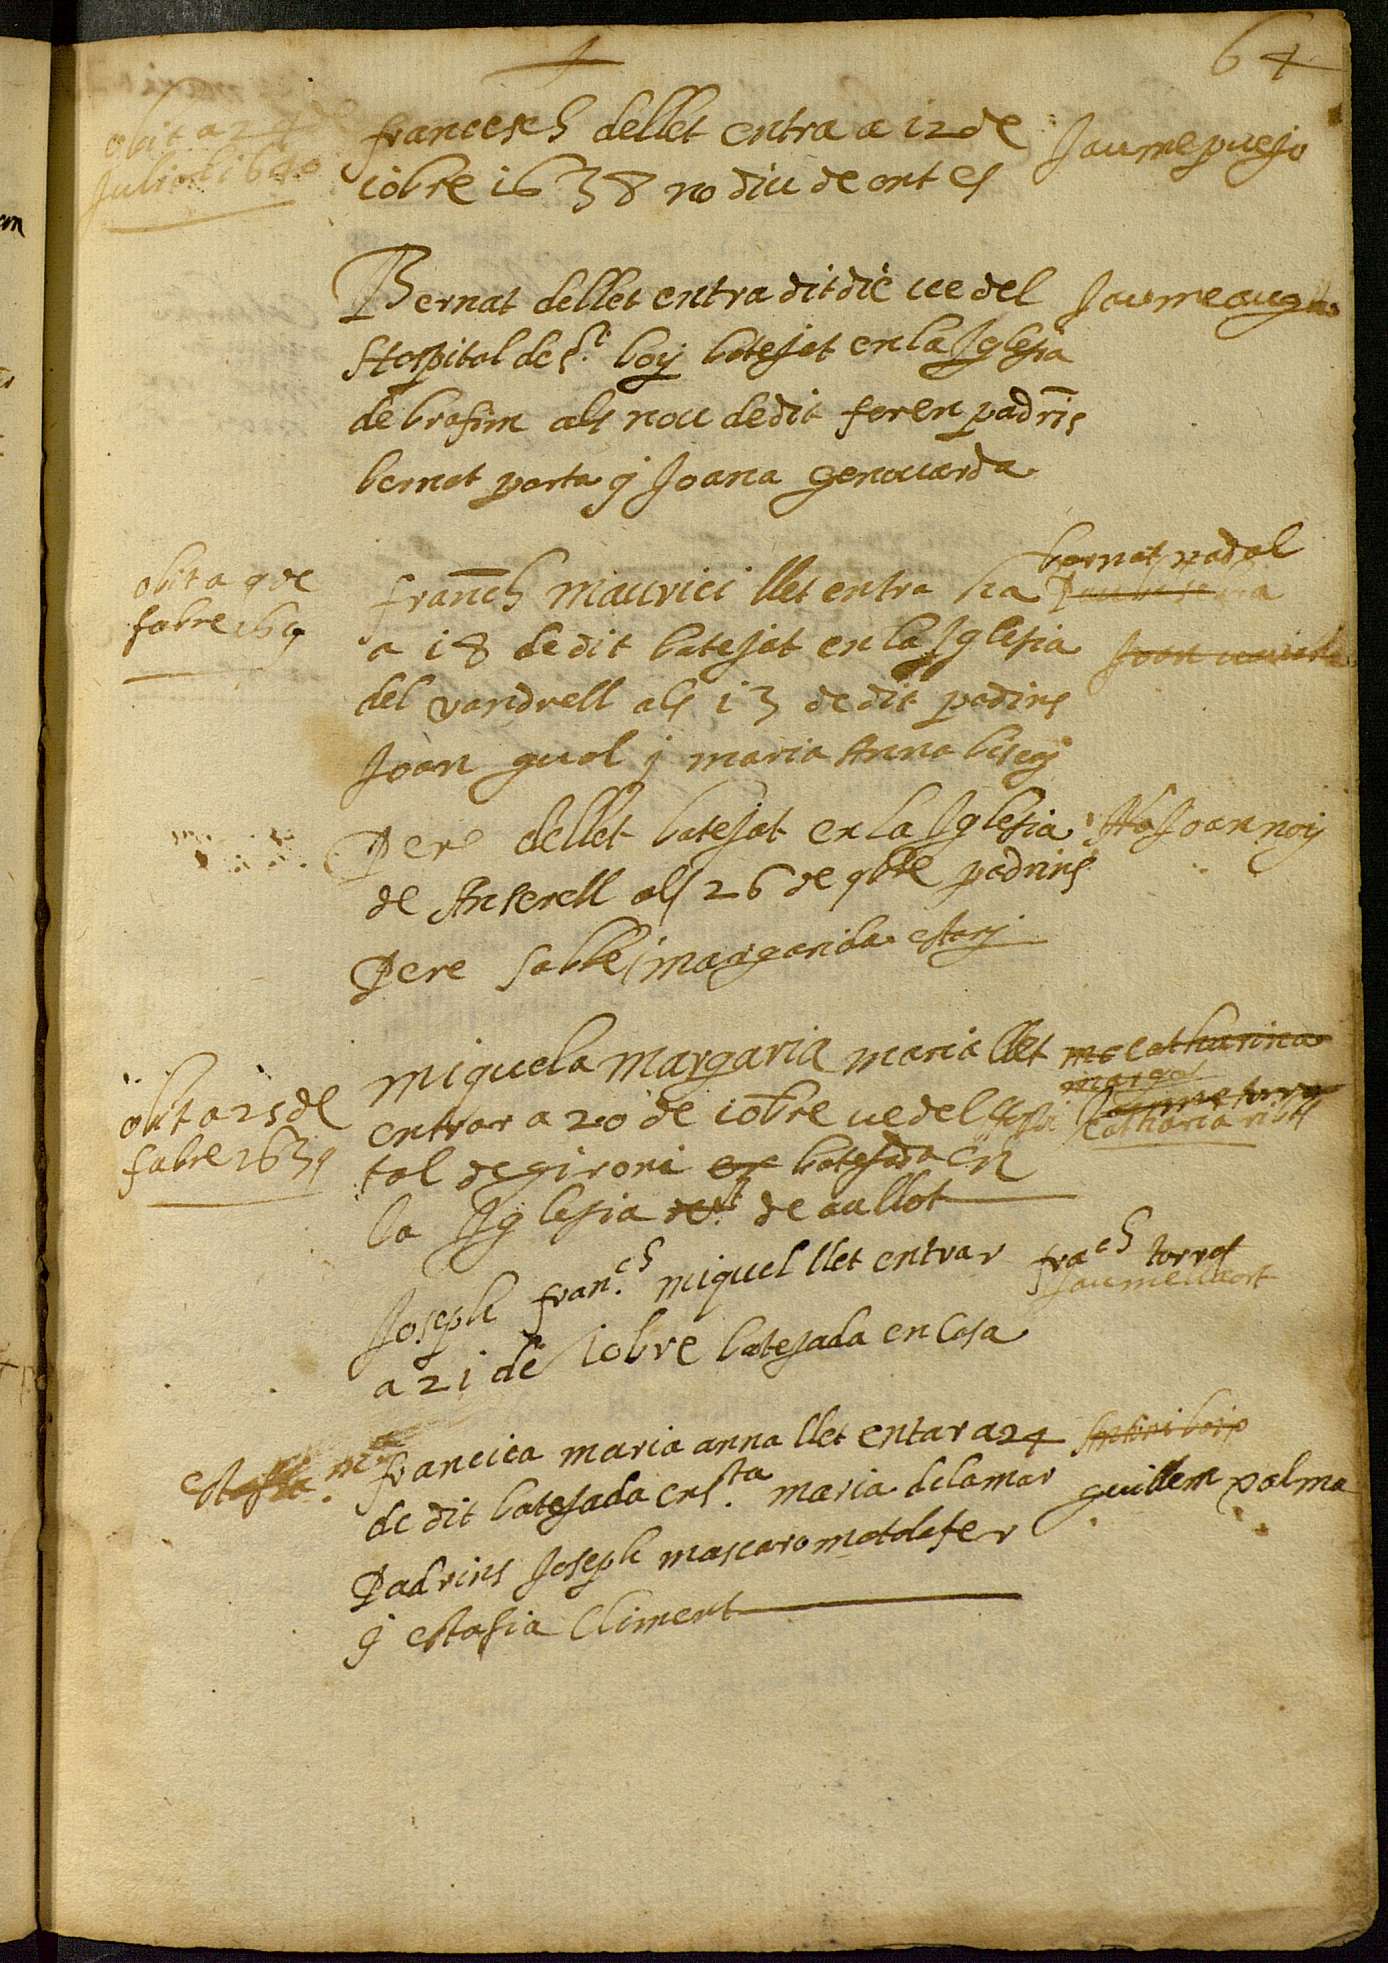 64
obit a 24
Juliol 1640
francesch dellet entra a 12 de
10bre 1638 no diu de ont es
Jaume puejo
Bernat dellet entra dit die ve del
Hospital de St boy batejat en la Iglesia
de brafim als nou de dit foren padrīs
bernat porta y Joana genovarda
Jaume
obit a 9 de
fabre 1639
franch maurici llet entra
a 18 de dit batejat en la Iglesia
del vandrell als 13 de dit padins
Joan gual y maria Anna
bernat padal
Pere dellet batejat en la Iglesia
de Anserell als 26 de 9bre padrins
Pere sabbe i margarida
Joan noy
obit a 25 de
fabre 1639
miquela margaria maria llet
entrar a 20 de 10bre ve del Hospi
tal de gironi en batejada en
la Iglesia de St de avllot
me catharina
marga
Jaume torra
catharia
Joseph franch miquel llet entrar
a 21 de 10bre batejada en casa
frach torres
Jaume
francica maria anna llet entar a 24
de dit batejada en sta maria de la mar
Padrins Joseph mascaro matalafer
y estasia Climent
Antoni
guillem palma